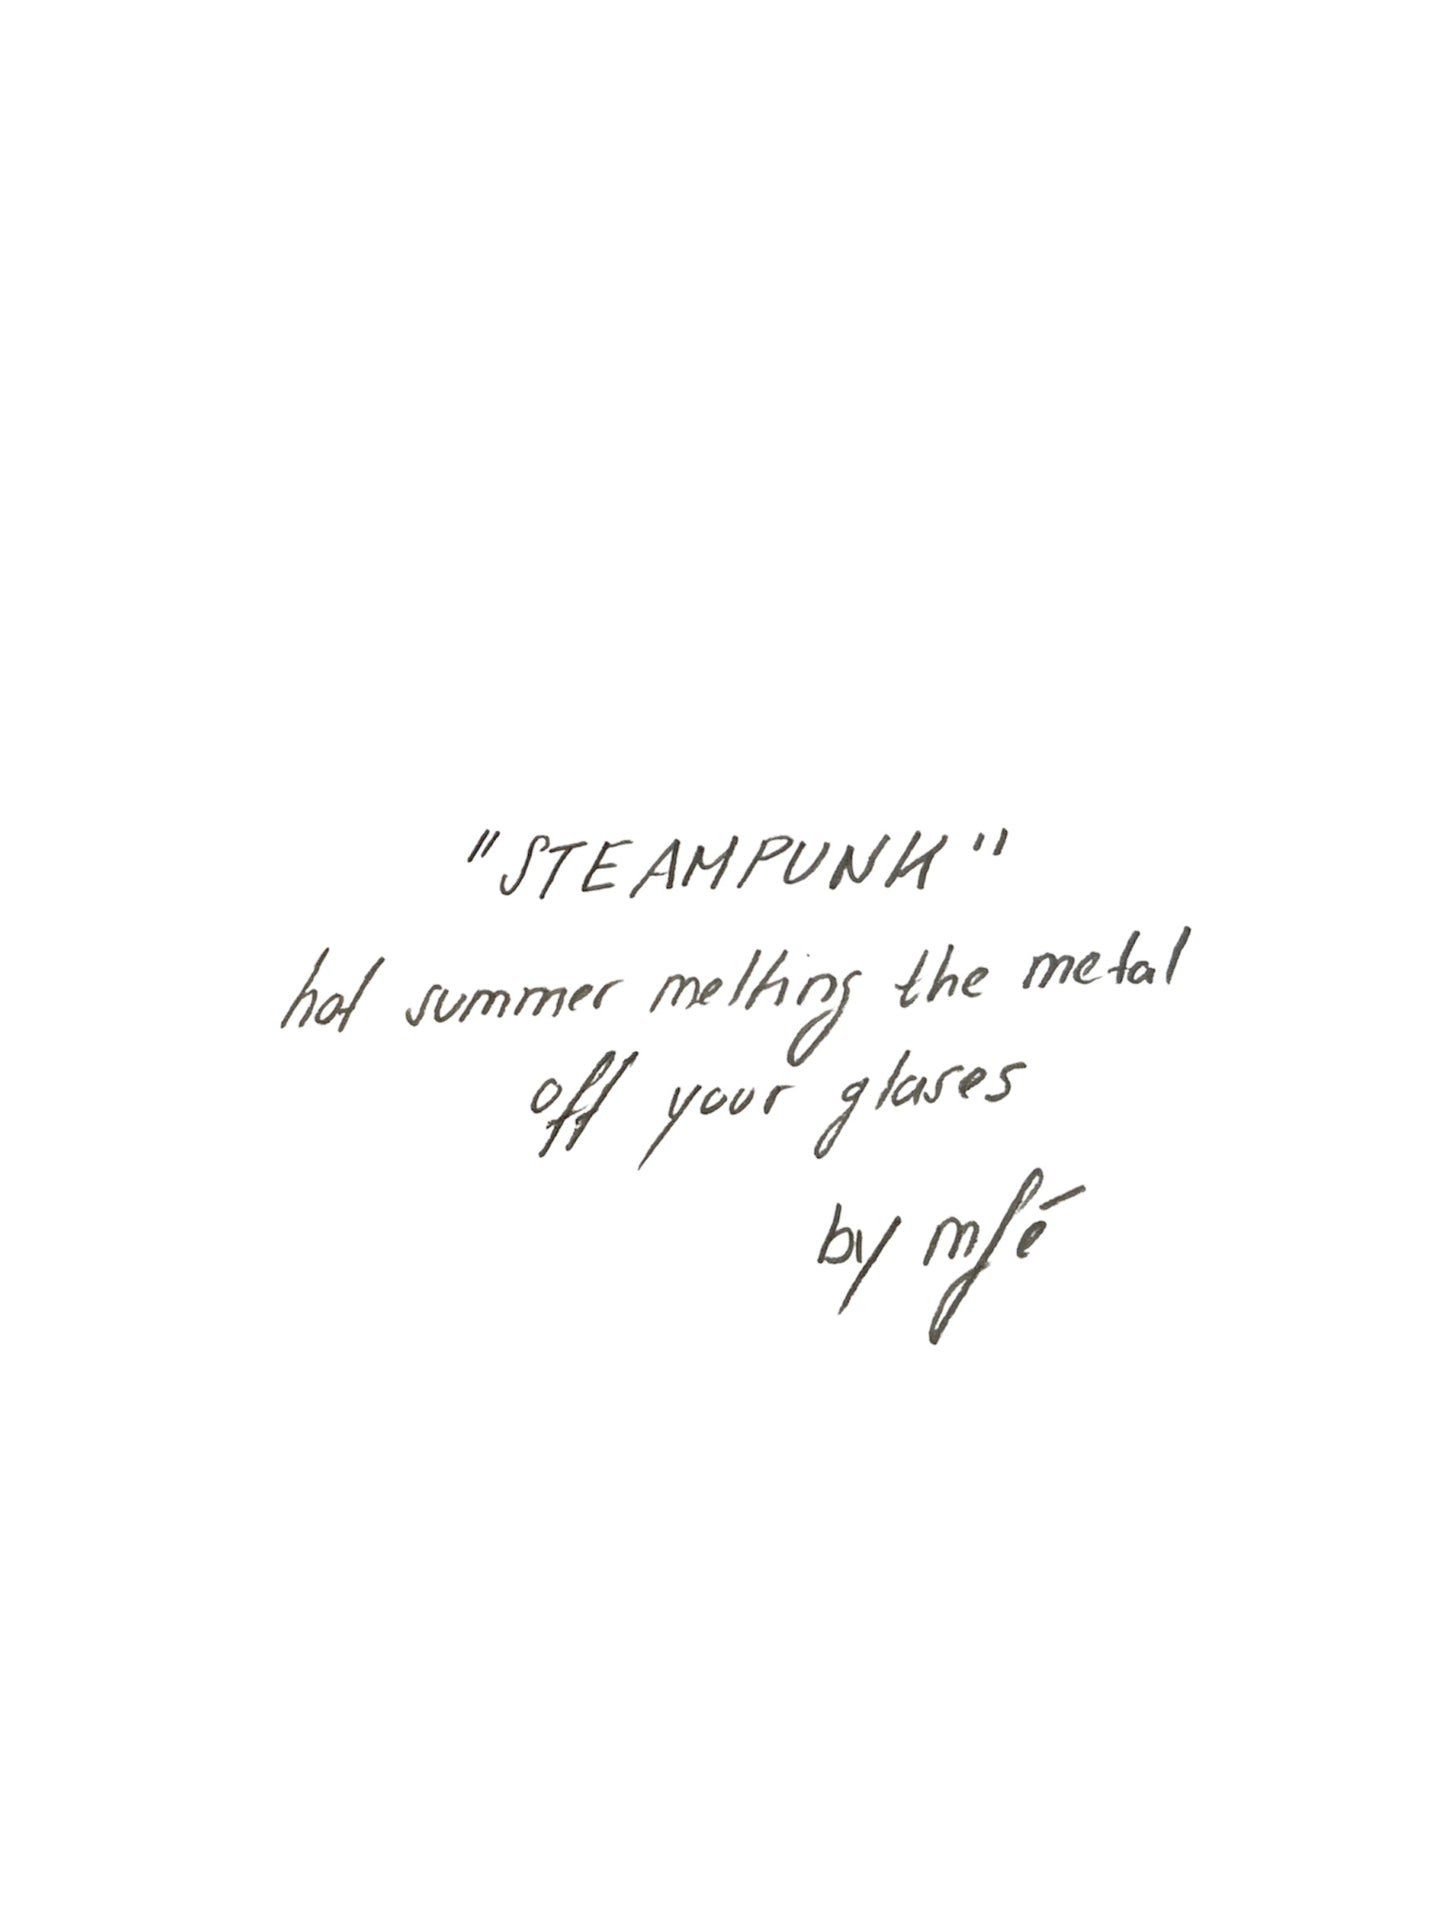 "STEAMPUNK"
hot summer melting the metal
off your glases
by mfé